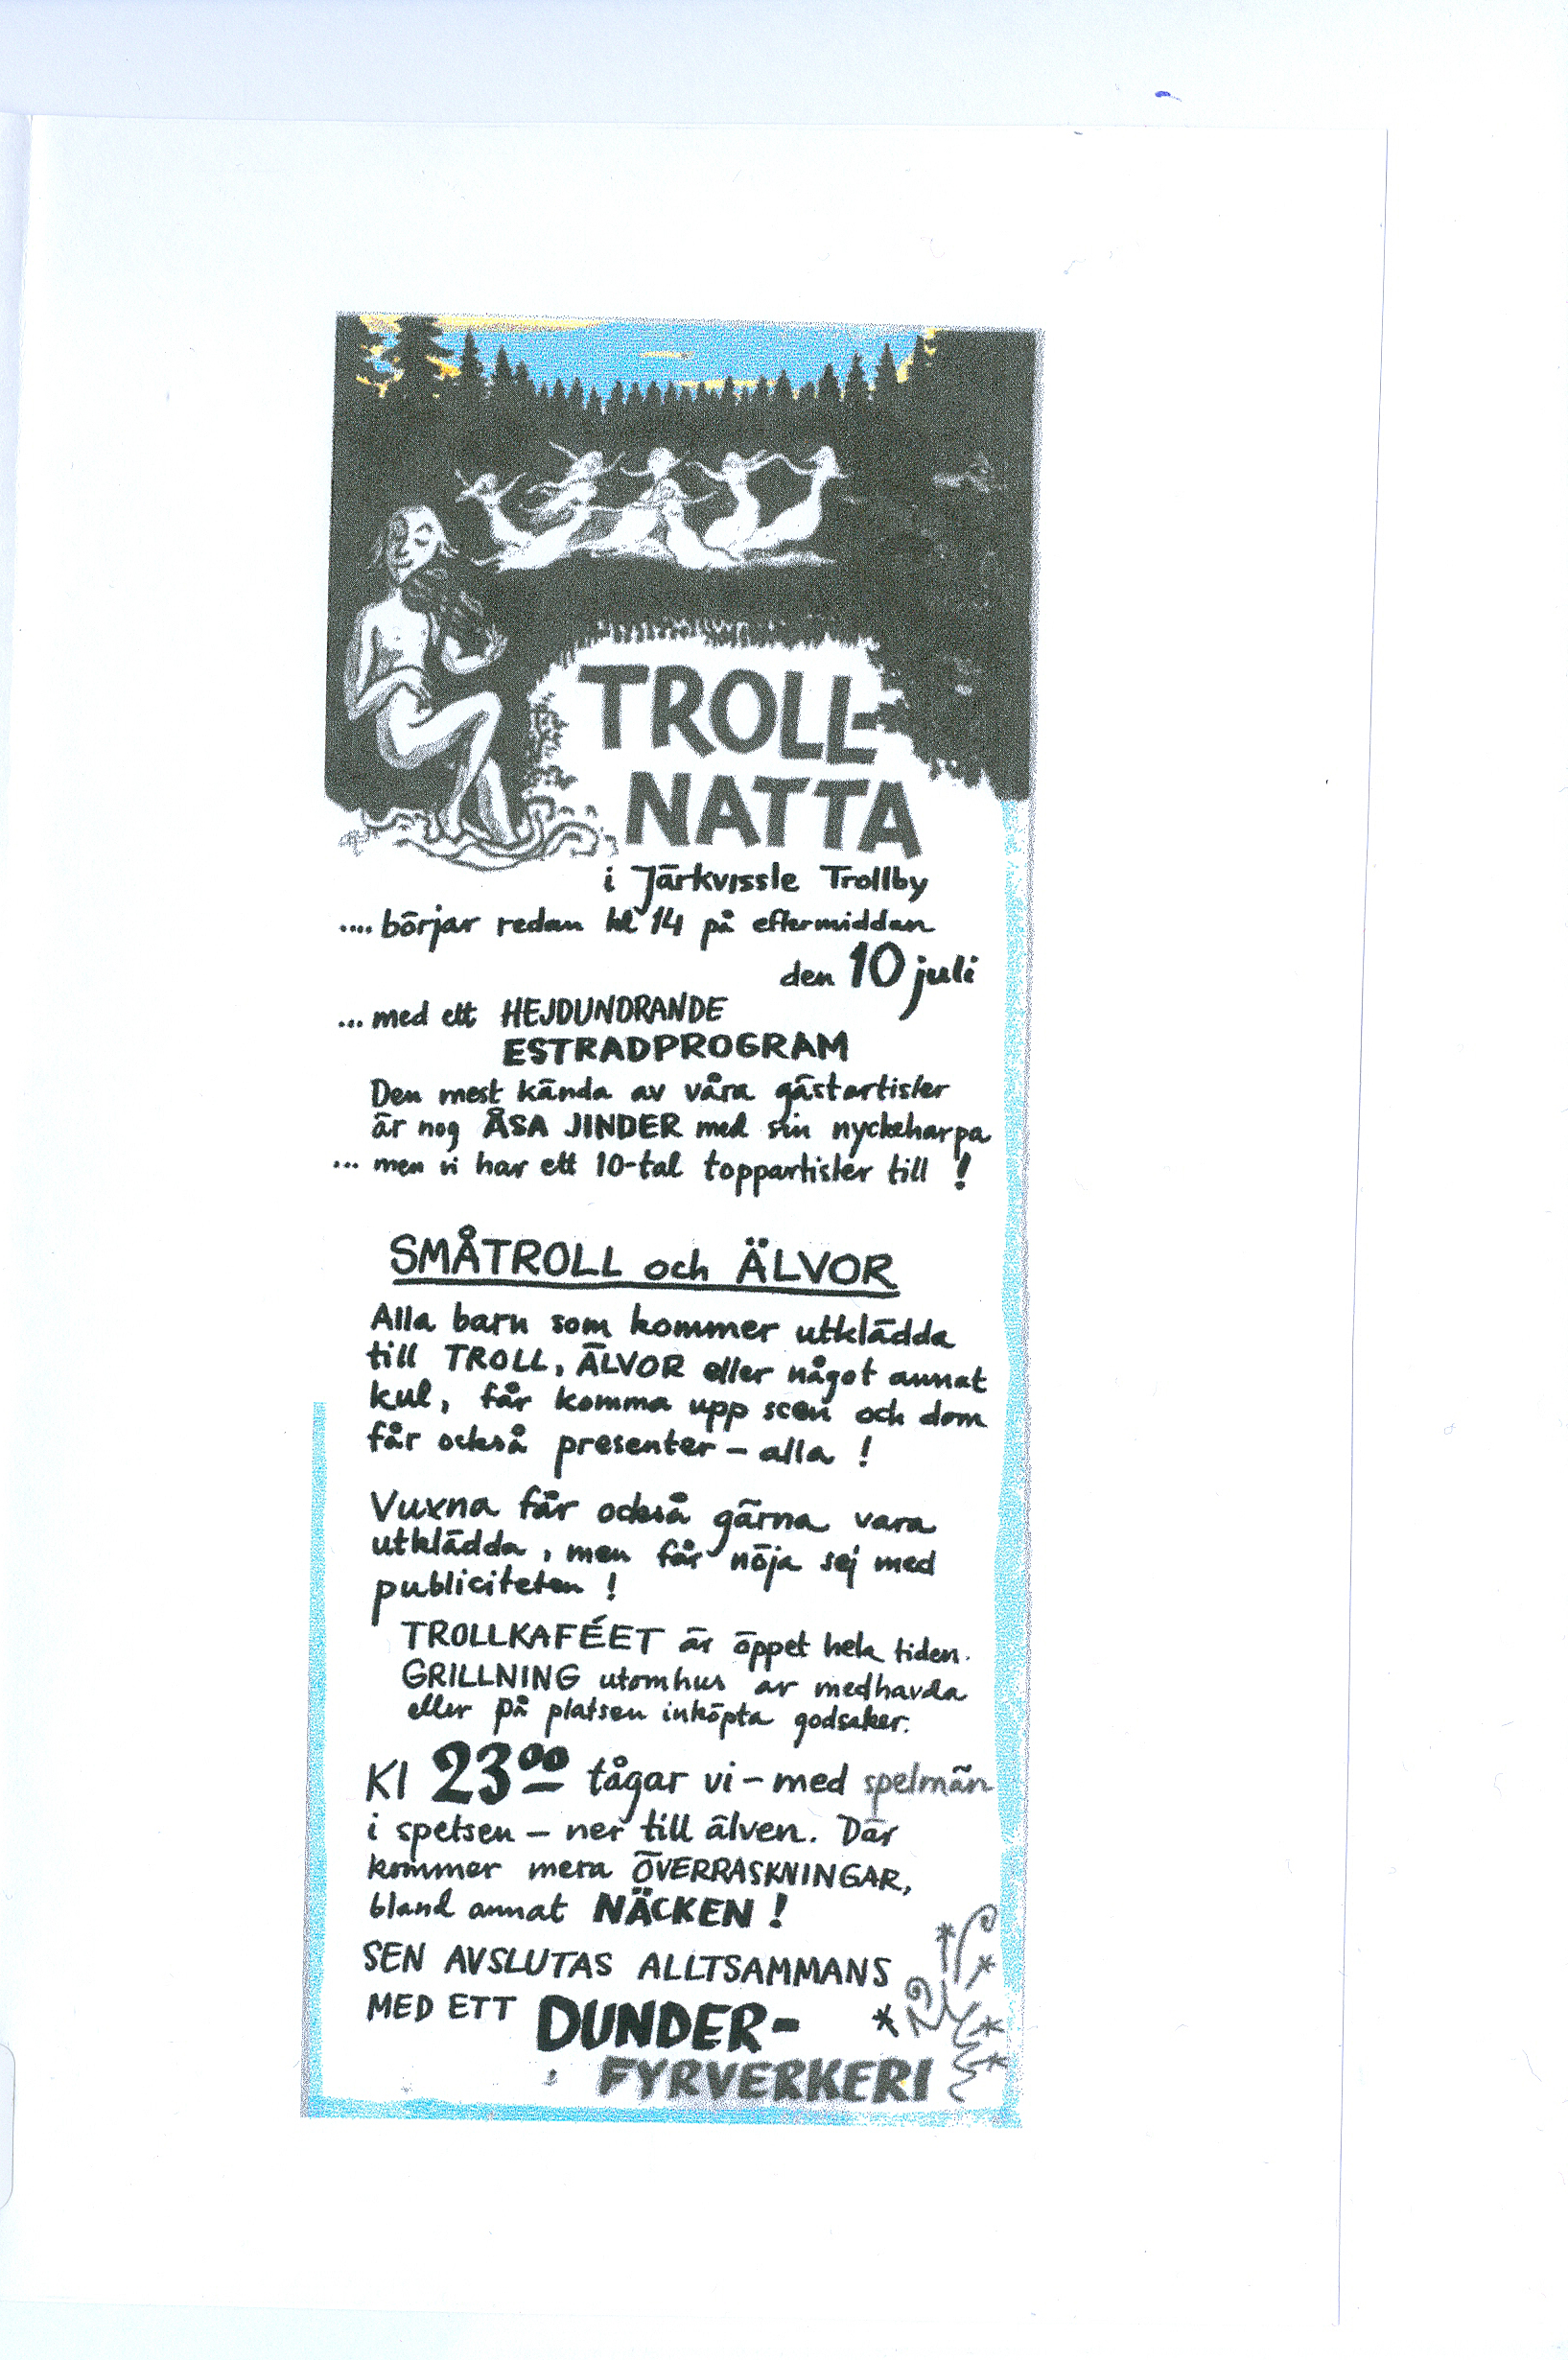 TROLL-
NATTA
i Järkvissle Trollby
.... börjar redan kl 14 på eftermiddan
den 10 juli
... med ett HEJDUNDRANDE
ESTRADPROGRAM
Den mest kända av våra gästartister
är nog ÅSA JINDER med sin nyckelharpa
... men vi har ett 10-tal toppartister till !
SMÅTROLL och ÄLVOR
Alla barn som kommer utklädda
till TROLL, ÄLVOR eller något annat
kul, får komma upp scen och dom
får också presenter - alla !
Vuxna får också gärna vara
utklädda, men får nöja sej med
publiciteten !
TROLLKAFÉET är öppet hela tiden.
GRILLNING utomhus av medhavda
eller på platsen inköpta godsaker.
Kl 23⁰⁰ tågar vi - med spelmän
i spetsen - ner till älven. Där
kommer mera ÖVERRASKNINGAR,
bland annat NÄCKEN !
SEN AVSLUTAS ALLTSAMMANS
MED ETT DUNDER-
FYRVERKERI